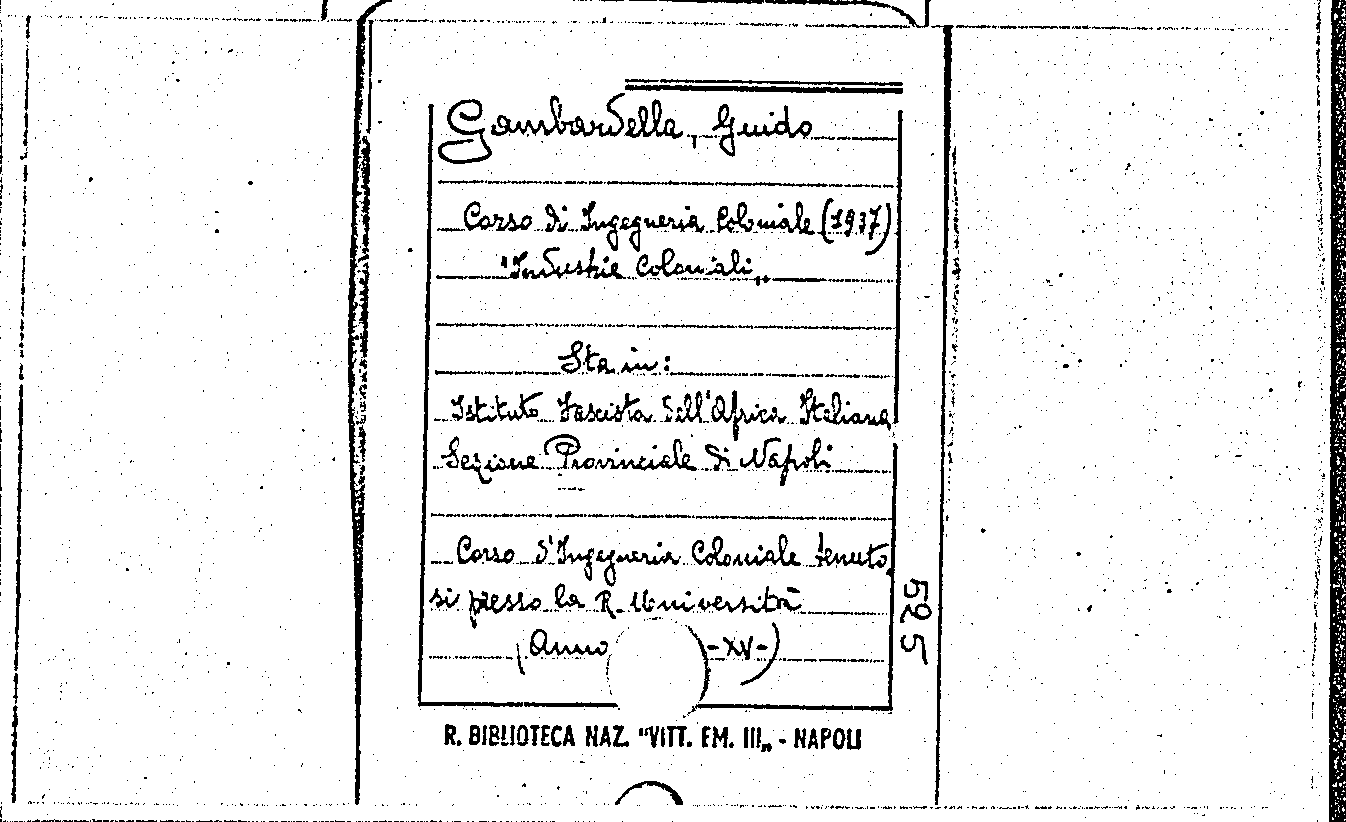 Gambardella, Guido
Corso di Ingegneria Coloniale (1937)
"Industrie Coloniali„
Sta in:
Istituto Fascista dell'Africa Italiana
Sezione Provinciale di Napoli
Corso d'Ingegneria Coloniale tenuto,
si presso la R. Università
(Anno -XV-)
525
R. BIBLIOTECA NAZ. "VITT. EM. III„ - NAPOLI